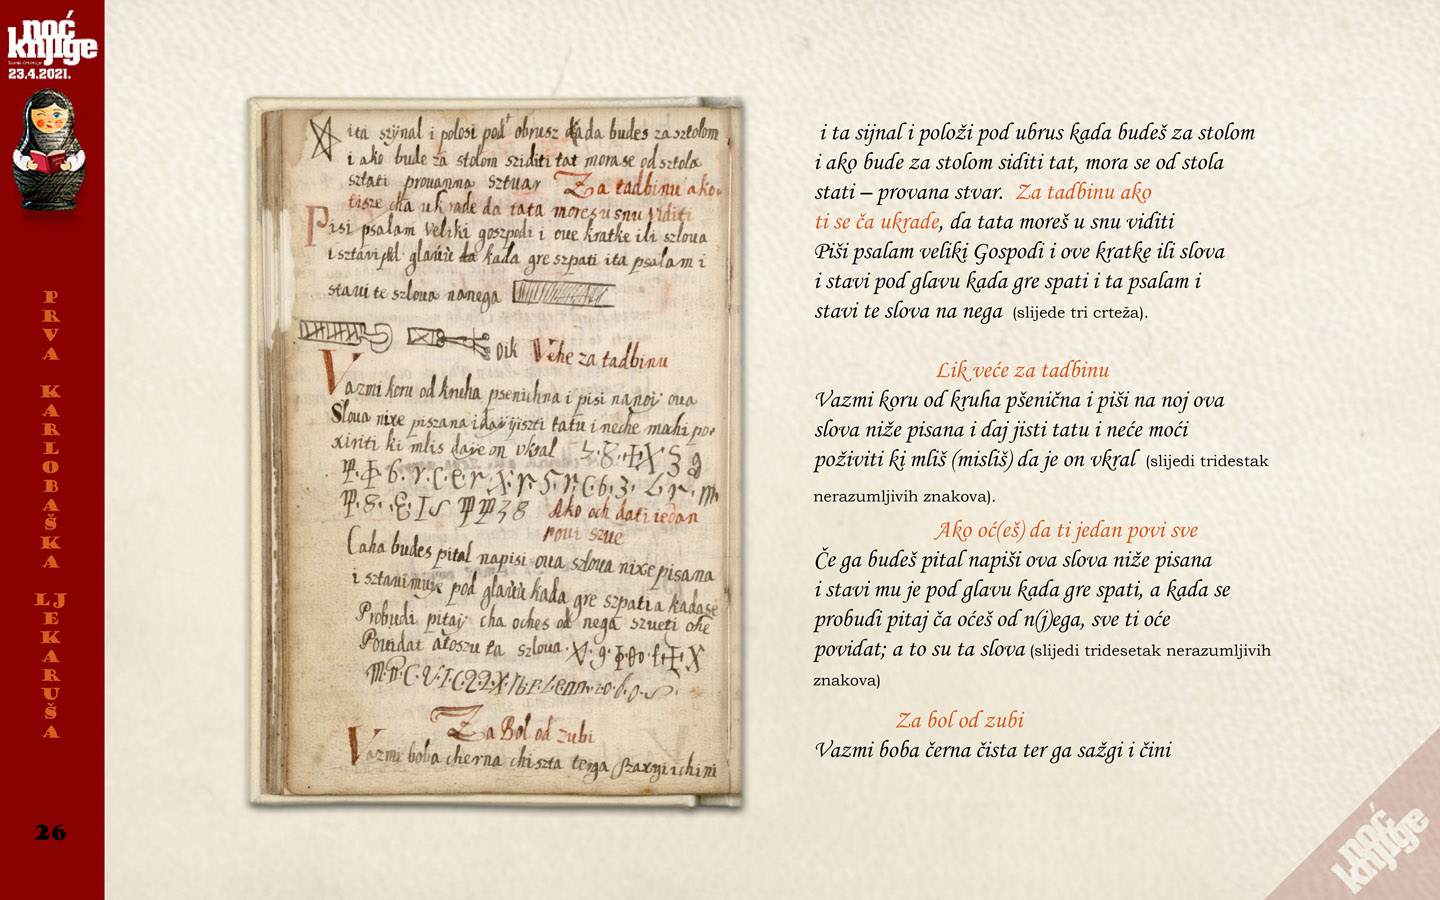 noć
knjige
23.4.2021.
PRVA KARLOBAŠKA LJEKARUŠA
26
ita szijnal i polosi pod obrusz kada budes za sztolom
i ako bude za stolom sziditi tat morase od sztola
sztati prouanna sztuar Za tadbinu ako
tisze cha ukrade da tata mores u snu viditi
Pisi psalam veliki goszpodi i oue kratke ili szloua
i sztavi pod glauu kada gre szpati ita psalam i
staui te szloua nanega
oik Vehe za tadbinu
Vazmi koru od kruha psenichna i pisi nanoj oua
Sloua nixe piszana i daj jiszti tatu i neche mochi po
xiviti ki mlis daje on vkral
Ako och dati iedan
poui szue
Caha budes pital napisi oua szloua nixe pisana
i sztauimuje pod glauu kada gre szpati a kadase
Probudi pitaj cha oches od nega szueti ohe
Povidat atoszu ta szloua
Za Bol od zubi
Vazmi boba cherna chiszta terga szaxgi i chini
i ta sijnal i položi pod ubrus kada budeš za stolom
i ako bude za stolom siditi tat, mora se od stola
stati – provana stvar. Za tadbinu ako
ti se ča ukrade, da tata moreš u snu viditi
Piši psalam veliki Gospodi i ove kratke ili slova
i stavi pod glavu kada gre spati i ta psalam i
stavi te slova na nega (slijede tri crteža).
Lik veće za tadbinu
Vazmi koru od kruha pšenična i piši na noj ova
slova niže pisana i daj jisti tatu i neće moći
poživiti ki mliš (misliš) da je on vkral (slijedi tridestak
nerazumljivih znakova).
Ako oć(eš) da ti jedan povi sve
Če ga budeš pital napiši ova slova niže pisana
i stavi mu je pod glavu kada gre spati, a kada se
probudi pitaj ča oćeš od n(j)ega, sve ti oće
povidat; a to su ta slova (slijedi tridesetak nerazumljivih
znakova)
Za bol od zubi
Vazmi boba černa čista ter ga sažgi i čini
noć
knjige